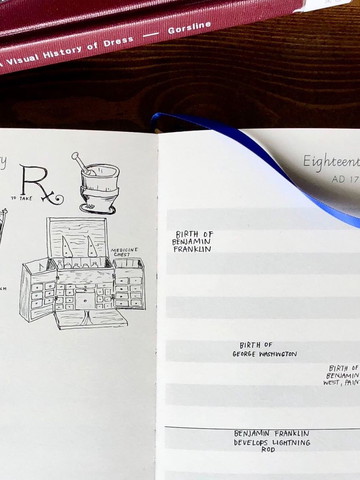 A Visual History of Dress — Gorsline
R
TO TAKE
MEDICINE
CHEST
Eighteent
AD 17
BIRTH OF
BENJAMIN
FRANKLIN
BIRTH OF
GEORGE WASHINGTON
BIRTH OF
BENJAMIN
WEST, PAIN
BENJAMIN FRANKLIN
DEVELOPS LIGHTNING
ROD